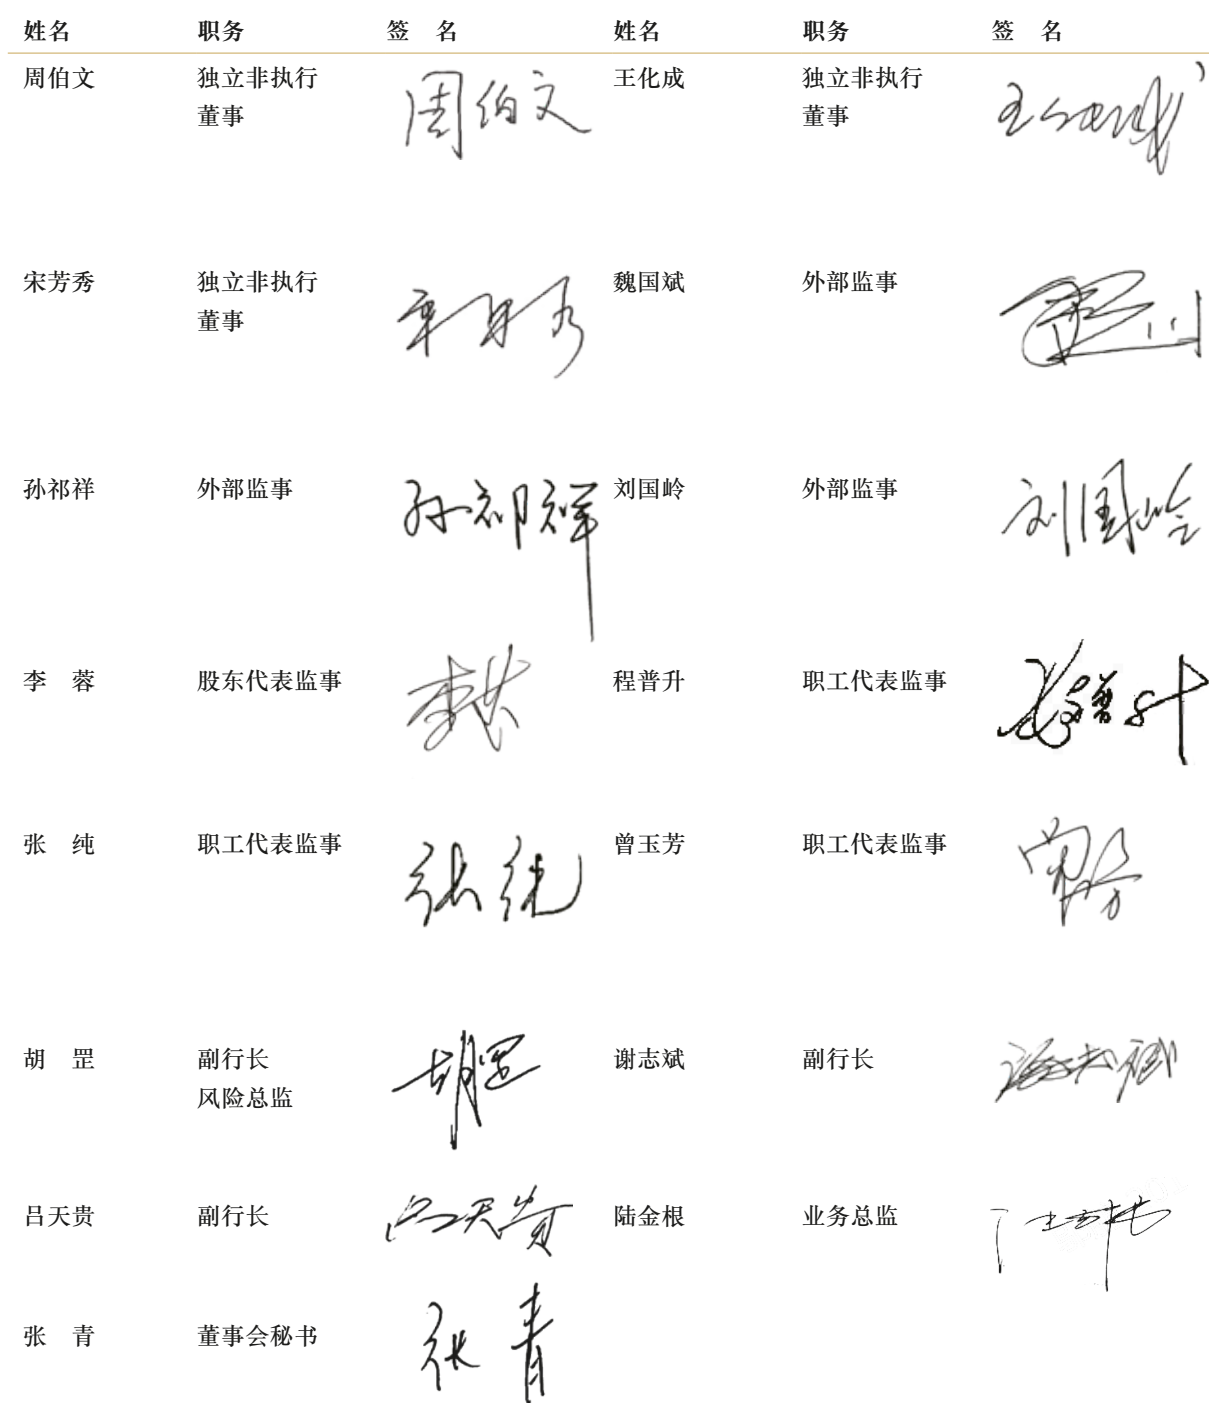 姓名 职务 签 名 姓名 职务 签 名
周伯文 独立非执行 周伯文 王化成 独立非执行
董事 董事
宋芳秀 独立非执行 魏国斌 外部监事
董事
孙祁祥 外部监事 孙祁祥 刘国岭 外部监事 刘国岭
李 蓉 股东代表监事 程普升 职工代表监事
张 纯 职工代表监事 张纯 曾玉芳 职工代表监事
胡 罡 副行长 胡罡 谢志斌 副行长
风险总监
吕天贵 副行长 吕天贵 陆金根 业务总监
张 青 董事会秘书 张青